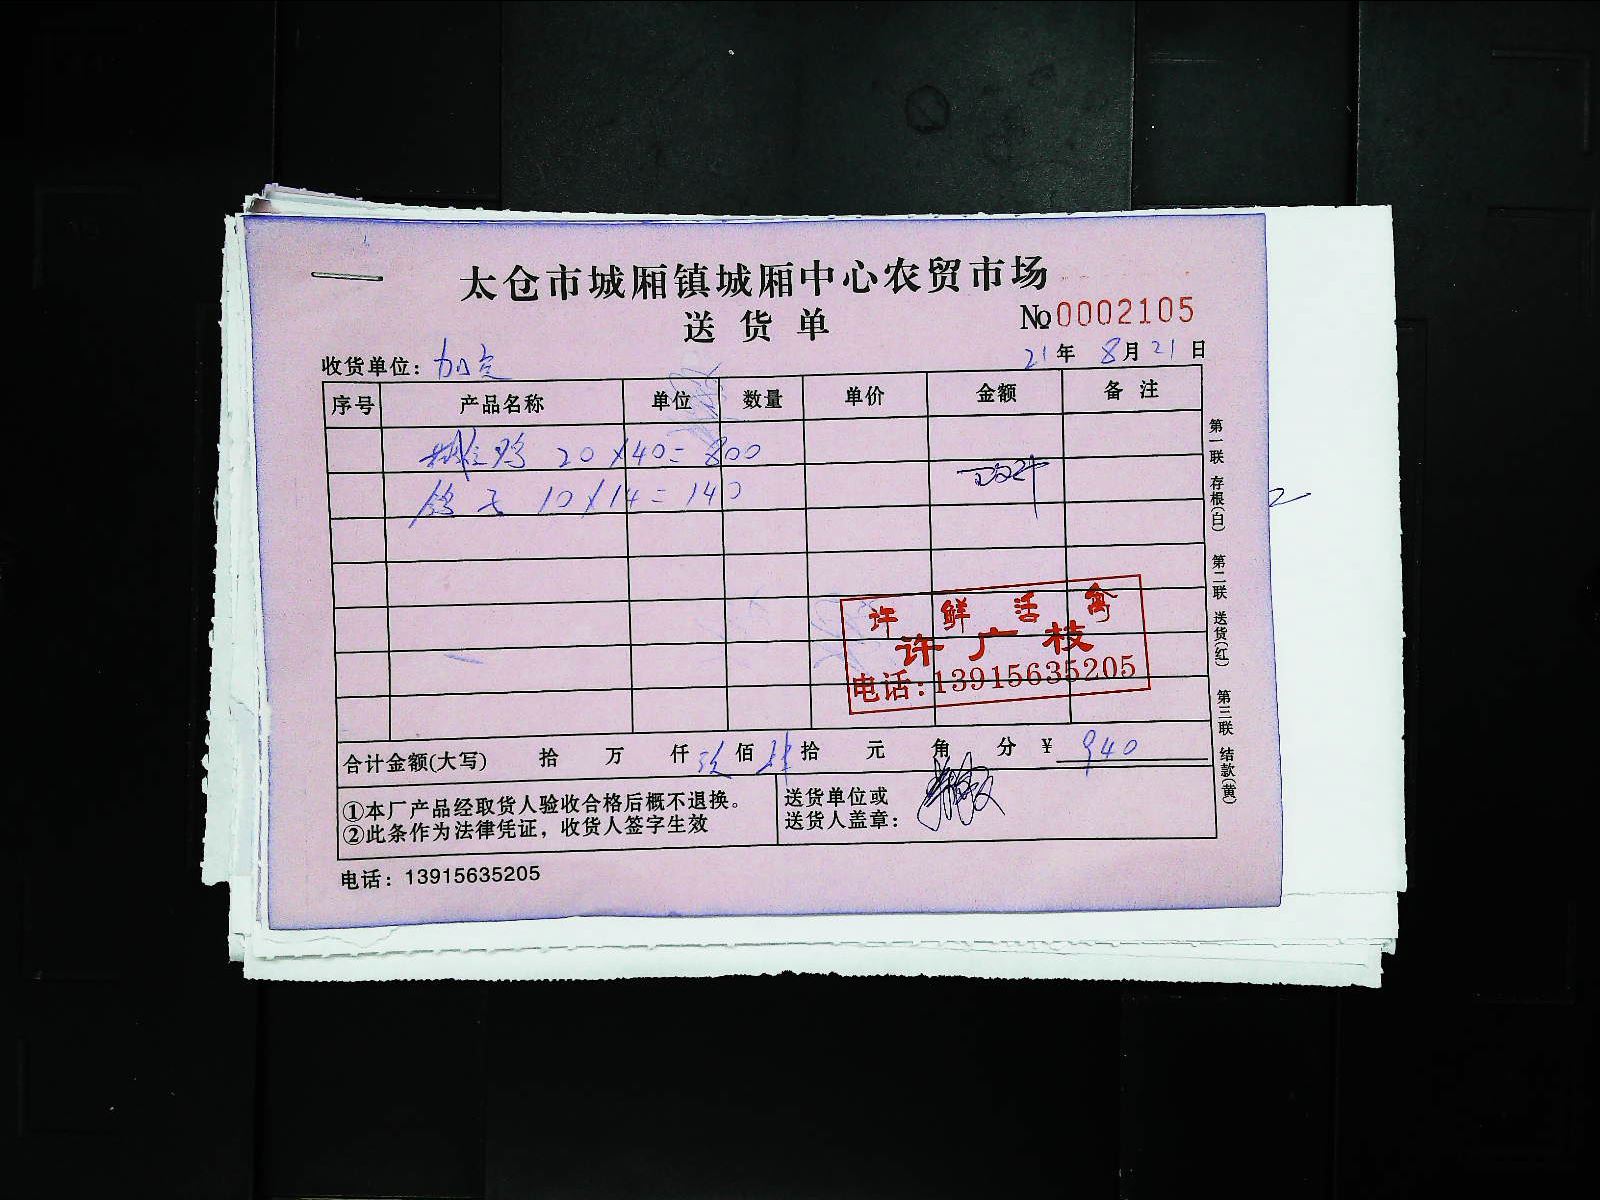 太仓市城厢镇城厢中心农贸市场
送货单
№0002105
收货单位：加定
21年 8月21日
序号 产品名称 单位 数量 单价 金额 备注
鸡 20×40=800
鸽子 10×14=140
许鲜活禽
许广枝
电话：13915635205
合计金额(大写) 拾 万 仟 玖 佰 肆 拾 元 角 分 ¥ 940
①本厂产品经取货人验收合格后概不退换。
②此条作为法律凭证，收货人签字生效
送货单位或
送货人盖章：
电话：13915635205
第一联 存根(白) 第二联 送货(红) 第三联 结款(黄)